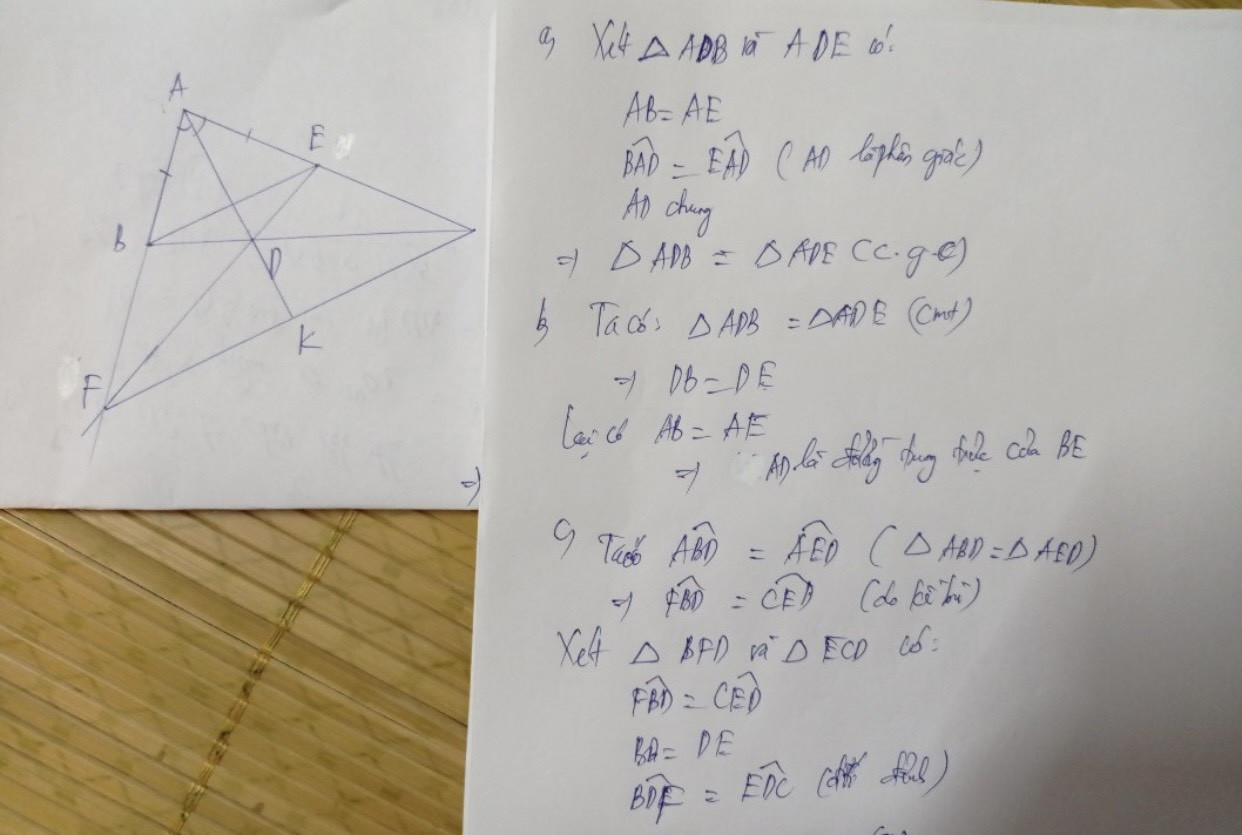 A
E
B
D
K
F
=)
a, Xét △ ADB và ADE có:
AB = AE
BAD^ = EAD^ (AD là phân giác)
AD chung
=) △ ADB = △ ADE (c.g.c)
b, Ta có: △ ADB = △ADE (cmt)
=) DB = DE
Lại có AB = AE
=) AD là đường trung trực của BE
c, Ta có ABD^ = AED^ (△ ABD = △ AED)
=) FBD^ = CED^ (do kề bù)
Xét △ BFD và △ ECD có:
FBD^ = CED^
BD = DE
BDF^ = EDC^ (đối đỉnh)